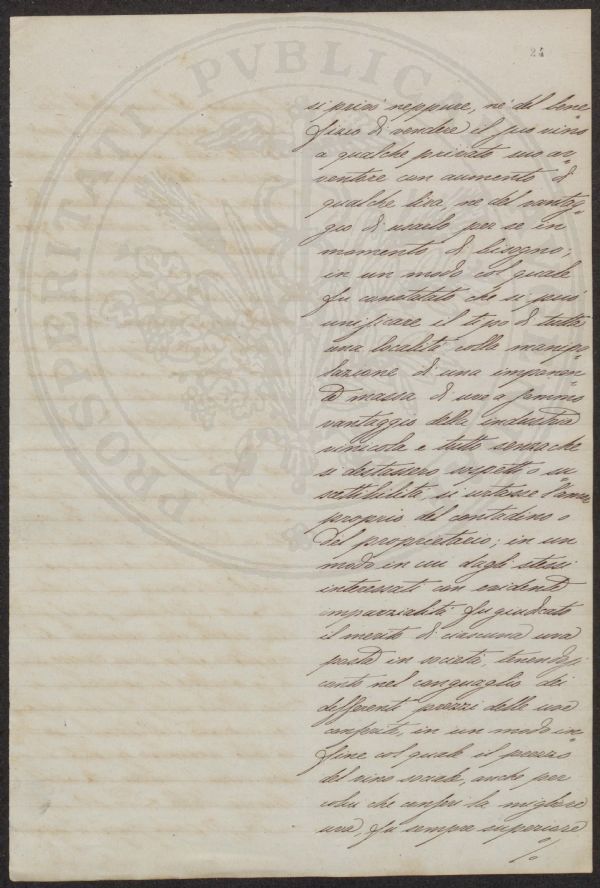 24
PROSPERITATI PVBLICAE
si privi neppure, nè del bene
fizio di vendere il suo vino
a qualche privato suo av-
ventore con aumento di
qualche lira, nè del vantag-
gio di usarlo per se in
momento di bisogno;
in un modo col quale
fu constatato che si può
unificare il tipo di tutta
una località colla manipo-
lazione di una imponen-
te massa di uva a sommo
vantaggio della industria
vinicola e tutto senza che
si destassero sospetti o su
scettibilità, si urtasse l'amor
proprio del contadino o
del proprietario; in un
modo in cui dagli stessi
interessati con evidente
imparzialità fu giudicato
il merito di ciascuna uva
posta in società, tenendosi
conto nel conguaglio dei
differenti prezzi delle uve
conferite, in un modo in-
fine col quale il prezzo
del vino sociale, anche per
colui che conferì la migliore
uva, fu sempre superiore